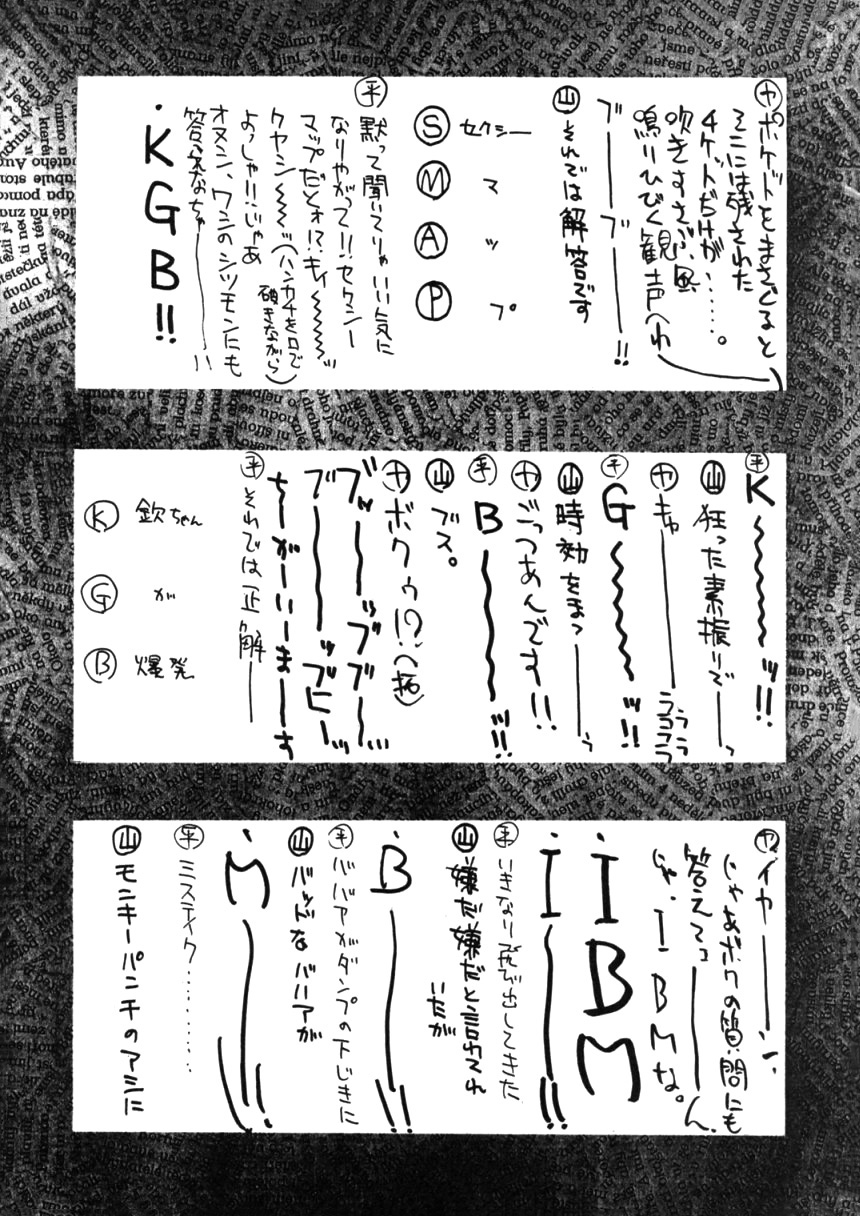 ヤ ポケットをまさぐると
そこには残された
4ケットだけが……。
吹きすさぶ風
鳴りひびく観声へわ
ブーーブーー!!
山 それでは解答です
S セクシー
M マ
A ッ
P プ
平 黙って聞いてりゃいい気に
なりやがって!!セクシー
マップだとォ!?キィ〜〜〜ッ
クヤシ〜〜〜ッ(ハンカチを口で
破きながら)
よっしゃ!!じゃあ
オヌシ、ワシのシツモンにも
答えなちゃ――!!
・KGB!!
平 K〜〜〜〜ッ!!
山 狂った素振りで――っ
ヤ キャ――ラララララ
平 G〜〜〜〜ッ!!
山 時効をまつ――う
ヤ ごっつあんです!!
平 B〜〜〜〜ッ!!
山 ブス。
ヤ ボクゥ!?(へ拓)
ブッーーッブブーー
ブーーーッブヒーッ
ちーがーいーまーーす
平 それでは正解――
K 欽ちゃん
G が
B 爆発
ヤ イヤ――ン.
じゃあボクの質問にも
答えてっ――ん.
じゃ、IBMな。
・IBM
・I――!!
平 いきなり飛び出してきた
山 嫌だ嫌だと言われ
いたが
・B――!!
平 ババアがダンプの下じきに
山 バッドなババアが
・M――!!
平 ミステイク………
山 モンキーパンチのアシに